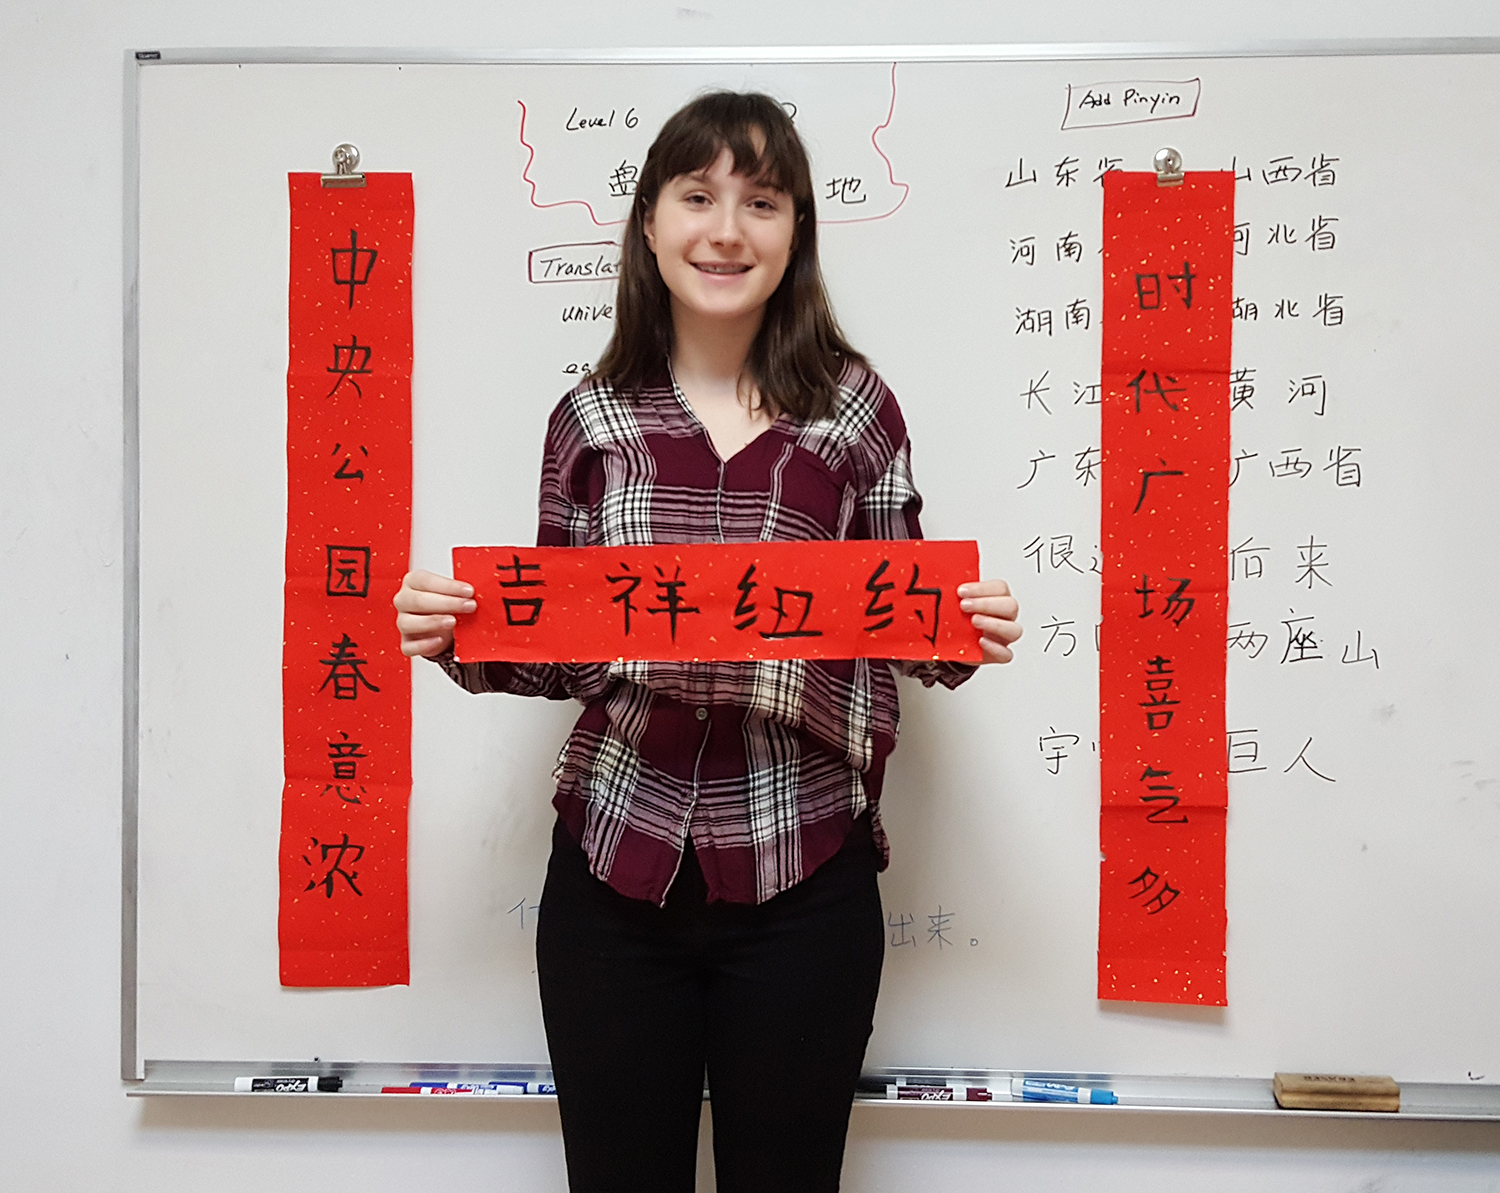 Level 6
盘
地
Translat
unive
Add Pinyin
山东省 山西省
河南 河北省
湖南 湖北省
长江 黄河
广东 广西省
很 后来
方 两座山
宇 巨人
出来。
中央公园春意浓
时代广场喜气多
吉祥纽约
EXPO
EXPO